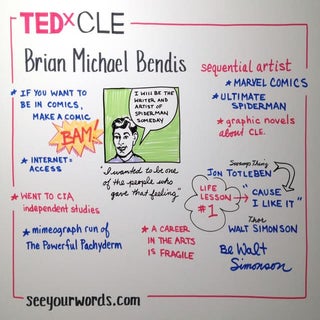 TEDxCLE
Brian Michael Bendis
sequential artist
* MARVEL COMICS
* ULTIMATE
SPIDERMAN
* graphic novels
about CLE.
* IF YOU WANT TO
BE IN COMICS,
MAKE A COMIC
BAM!
* INTERNET =
ACCESS
I WILL BE THE
WRITER AND
ARTIST OF
SPIDERMAN
SOMEDAY
"I wanted to be one
of the people who
gave that feeling"
Swamp Thing
JON TOTLEBEN
LIFE
LESSON
#1
"CAUSE
I LIKE IT"
Thor
WALT SIMONSON
Be Walt
Simonson
* WENT TO CIA
independent studies
* mimeograph run of
The Powerful Pachyderm
* A CAREER
IN THE ARTS
IS FRAGILE
seeyourwords.com